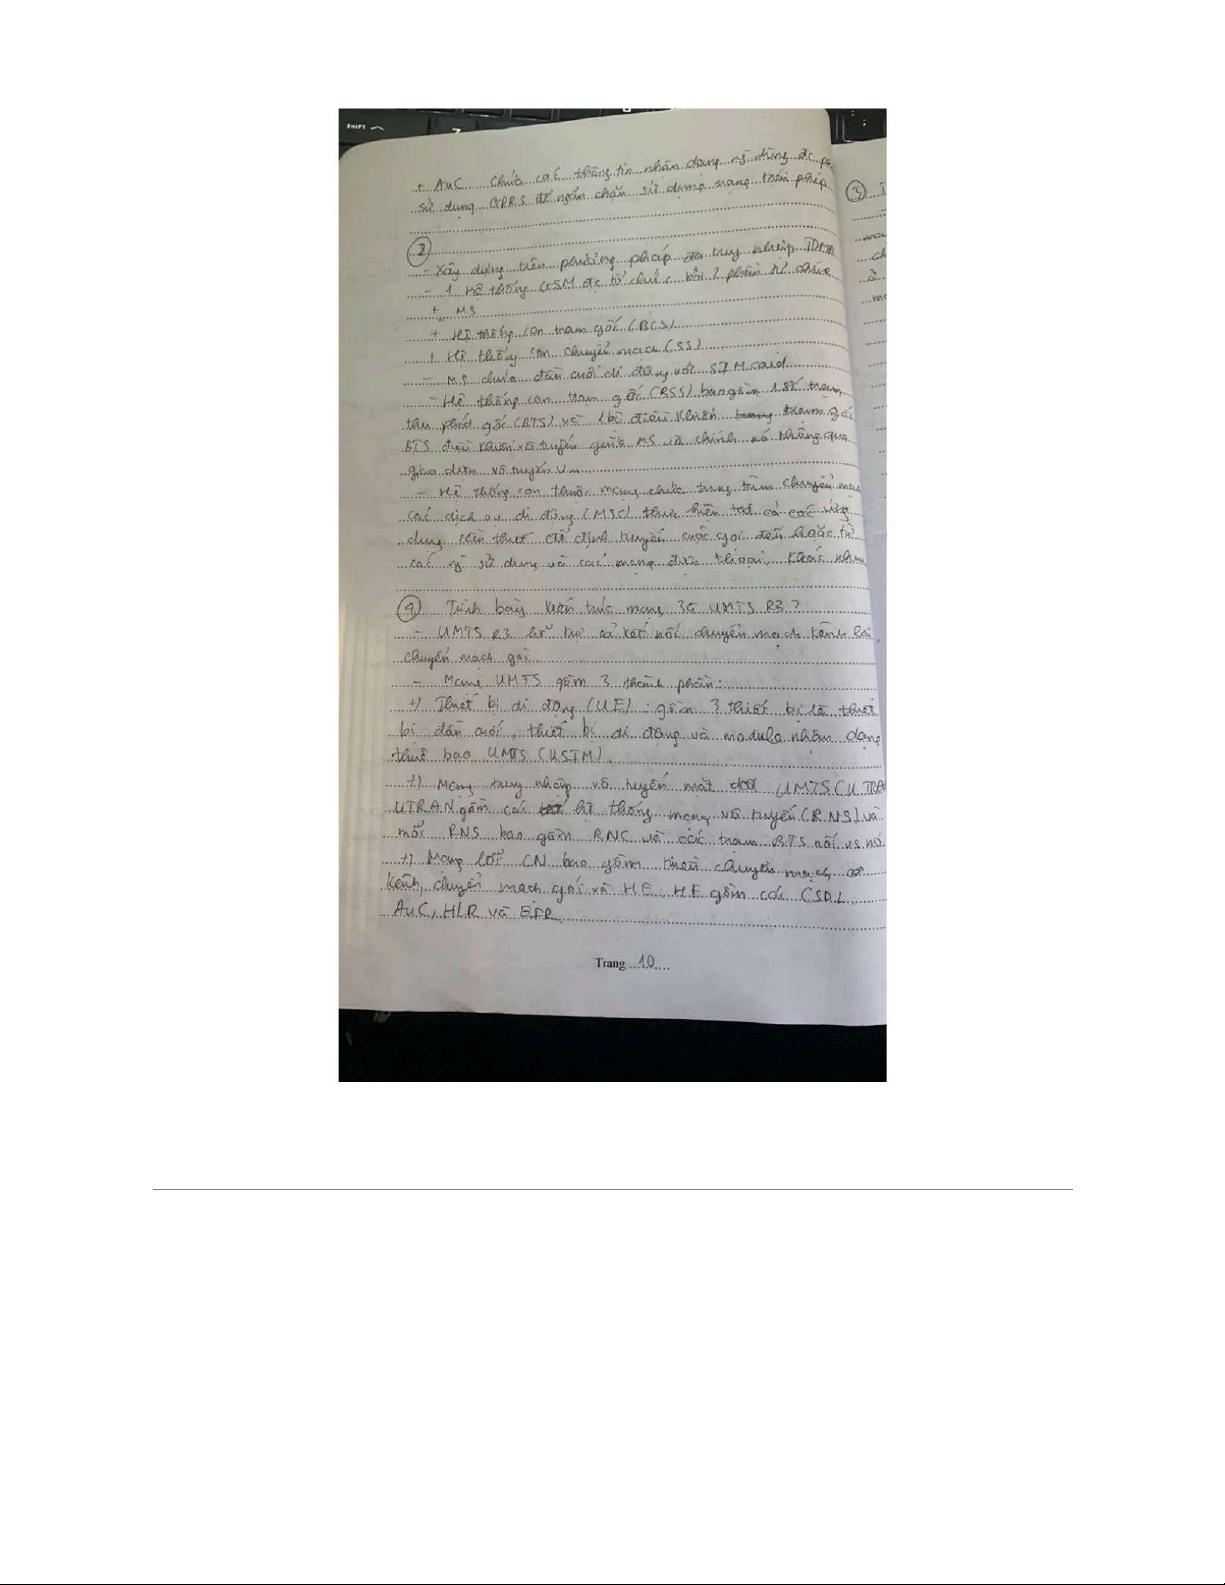 SHIFT
+ AuC chứa các thông tin nhận dạng ng dùng đc
sử dụng GPRS để ngăn chặn sử dụng mạng trái phép
③
②
- Xây dựng trên phương pháp đa truy nhập TDMA
- 1 hệ thống GSM đc tổ chức bởi 3 phần tử chính
+ MS
+ Hệ thống con trạm gốc (BCS)
+ Hệ thống con chuyển mạch (SS)
- MS chứa đầu cuối di động với SIM card
- Hệ thống con trạm gốc (BSS) bao gồm 1 số trạm
thu phát gốc (BTS) và 1 bộ điều khiển trạm gốc
BTS điều khiển vô tuyến giữa MS và chính nó thông qua
giao diện vô tuyến Um
- Hệ thống con thuộc mạng chứa trung tâm chuyển mạch
các dịch vụ di động (MSC) thực hiện tất cả các ứng
dụng cần thiết để định tuyến cuộc gọi đến hoặc từ
các ng sử dụng và các mạng điện thoại khác nhau
④ Trình bày kiến trúc mạng 3G UMTS R3?
- UMTS R3 hỗ trợ cả kết nối chuyển mạch kênh lẫn
chuyển mạch gói
- Mạng UMTS gồm 3 thành phần:
+) Thiết bị di động (UE) : gồm 3 thiết bị là thiết
bị đầu cuối, thiết bị di động và module nhận dạng
thuê bao UMTS (USIM).
+) Mạng truy nhập vô tuyến mặt đất UMTS (UTRAN
UTRAN gồm các hệ thống mạng vô tuyến (RNS) và
mỗi RNS bao gồm RNC và các trạm BTS nối vs nó
+) Mạng lõi CN bao gồm miền chuyển mạch
kênh, chuyển mạch gói và HE. HE gồm các CSDL
AuC, HLR và EIR
Trang 10